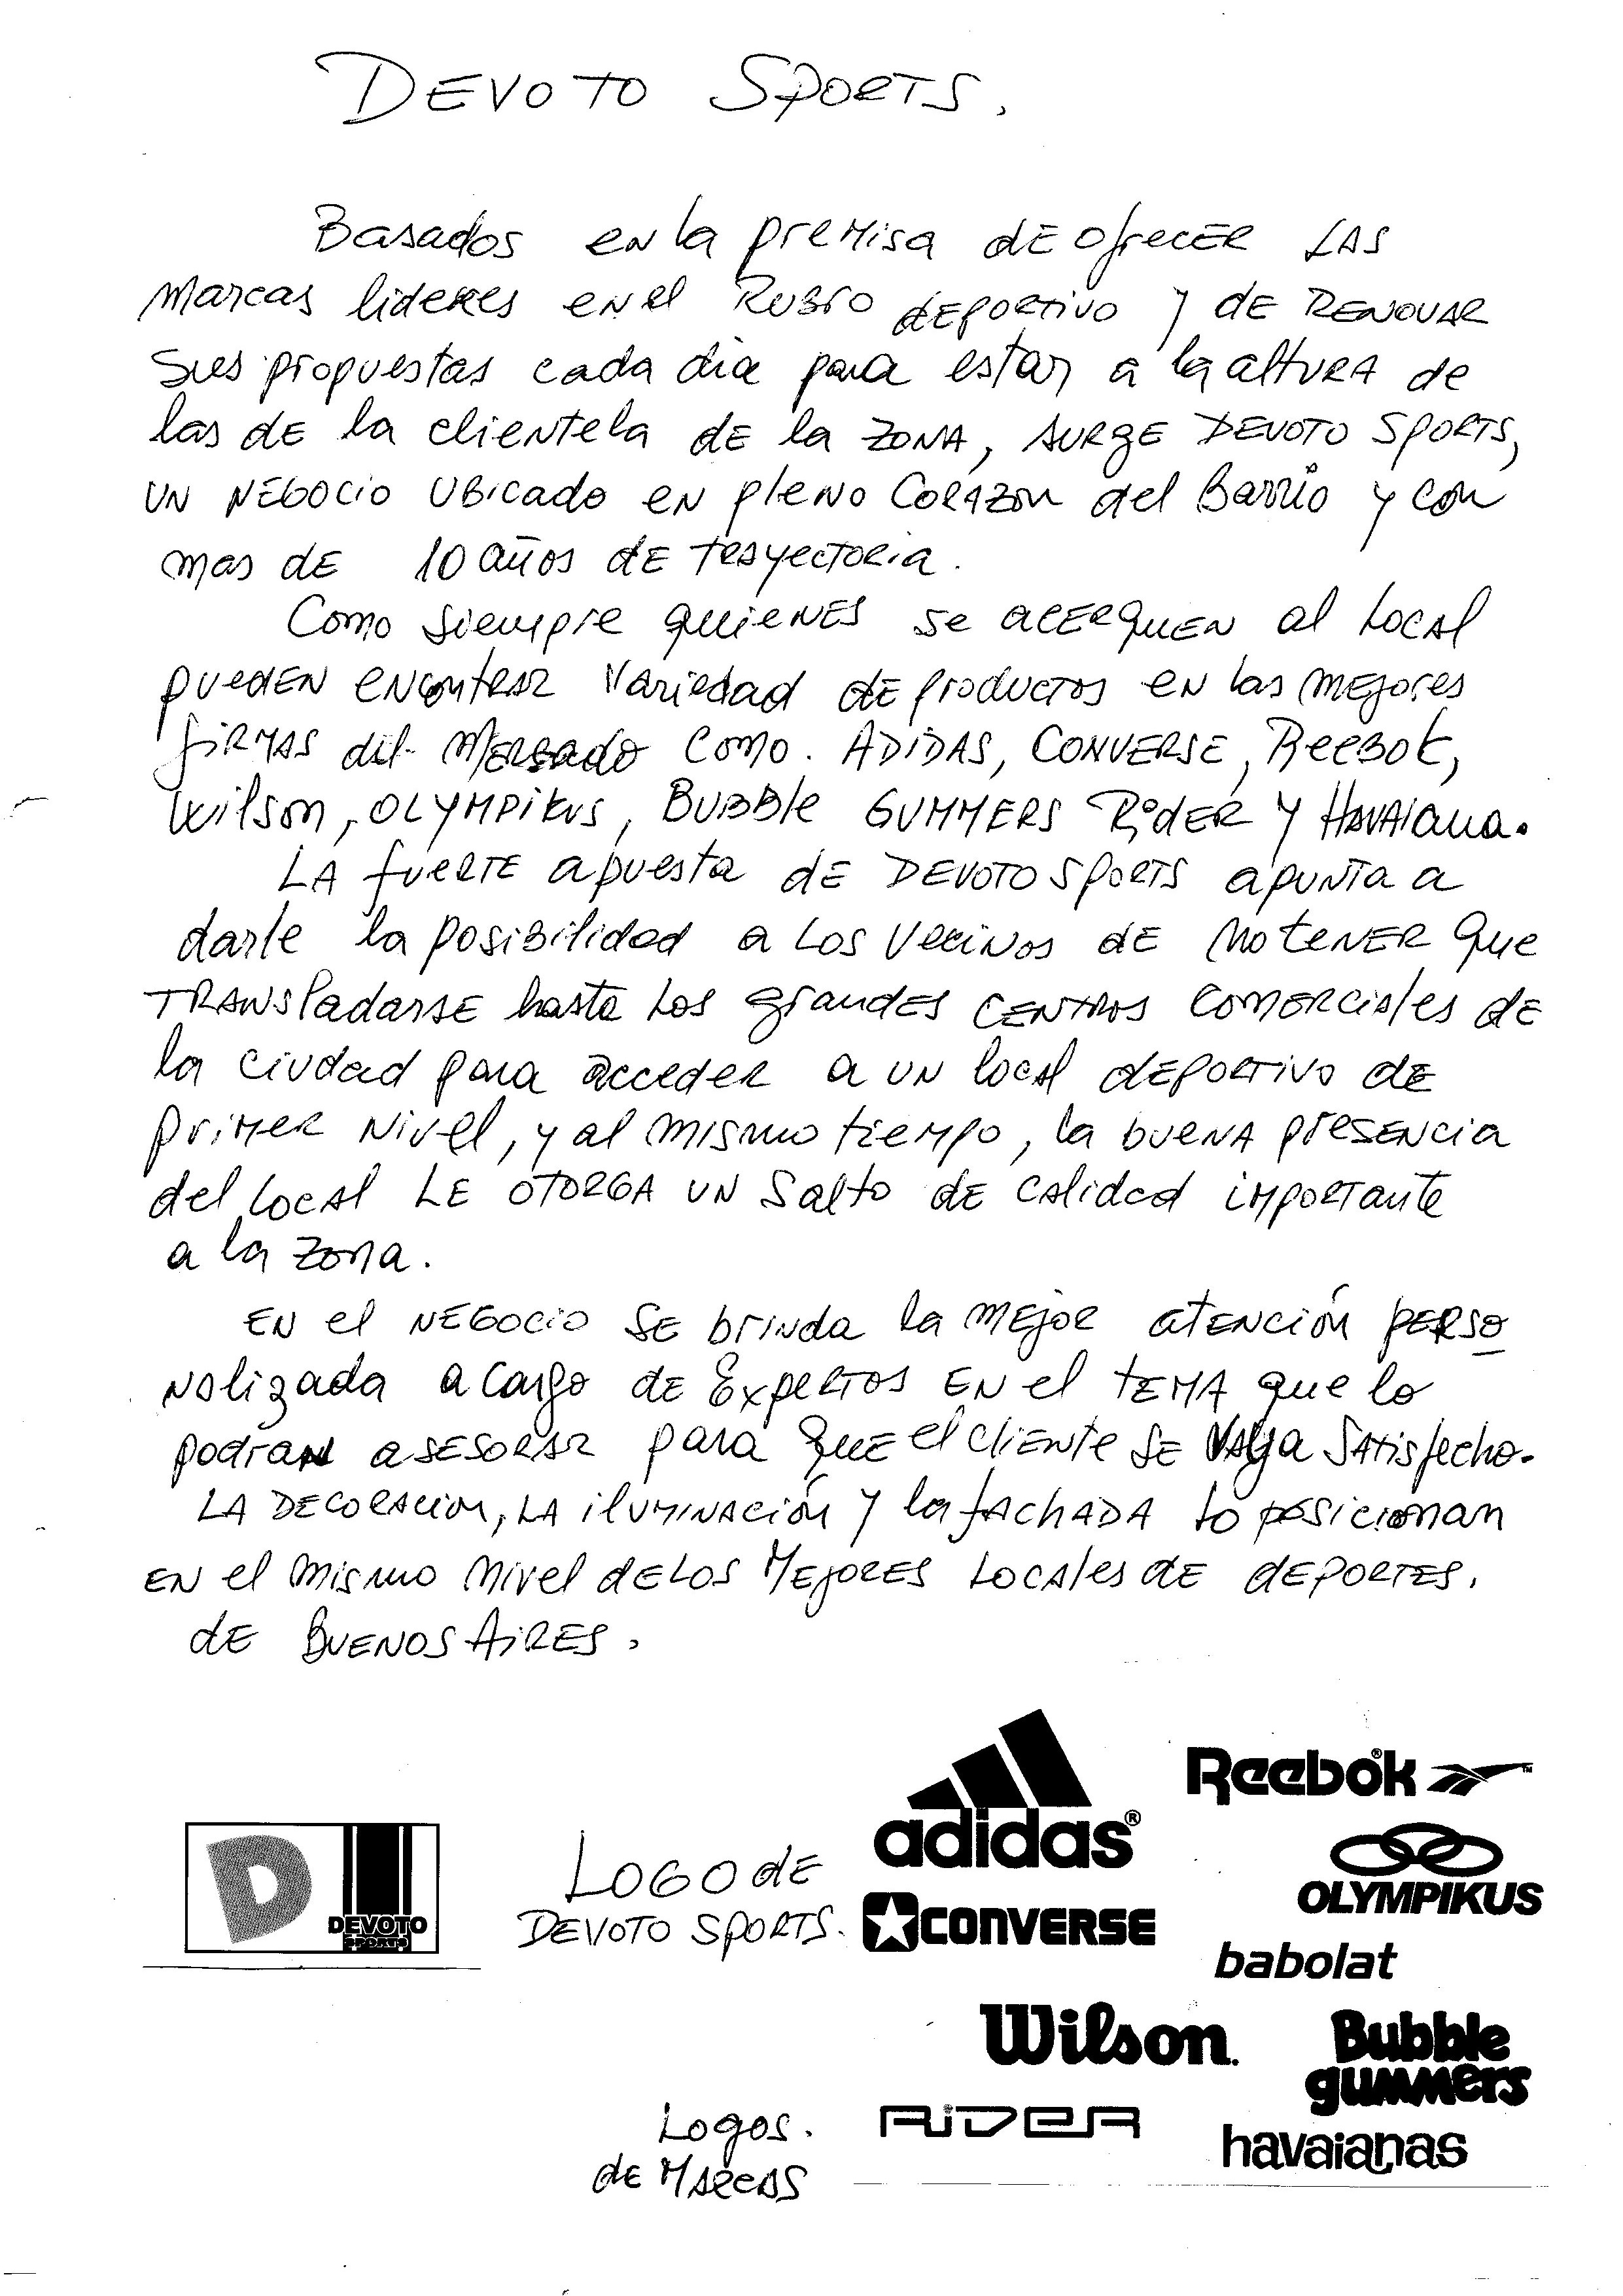 DEVOTO SPORTS.
Basados en la premisa de ofrecer las
marcas lideres en el rubro deportivo y de renovar
sus propuestas cada dia para estar a la altura de
las de la clientela de la zona, surge Devoto Sports,
un negocio ubicado en pleno corazon del Barrio y con
mas de 10 años de trayectoria.
Como siempre quienes se acerquen al local
pueden encontrar variedad de productos en las mejores
firmas del mercado como. Adidas, Converse, Reebok,
Wilson, Olympikus, Bubble Gummers Rider y Havaiana.
La fuerte apuesta de Devoto Sports apunta a
darle la posibilidad a los vecinos de no tener que
transladarse hasta los grandes centros comerciales de
la ciudad para acceder a un local deportivo de
primer nivel, y al mismo tiempo, la buena presencia
del local le otorga un salto de calidad importante
a la zona.
En el negocio se brinda la mejor atención perso
nalizada a cargo de Expertos en el tema que lo
podran asesorar para que el cliente se vaya satisfecho.
La decoracion, la iluminación y la fachada lo posicionan
en el mismo nivel de los mejores locales de deportes.
de Buenos Aires.
adidas®
Reebok ™
OLYMPIKUS
D DEVOTO SPORTS
Logo de
Devoto Sports.
CONVERSE
babolat
Wilson.
Bubble gummers
Logos.
de Marcas
RIDER
havaianas